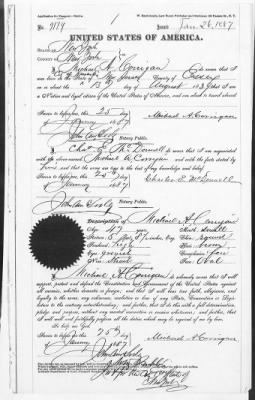 No. 9179
Issued Jan 26, 1887
UNITED STATES OF AMERICA.
STATE OF New York
COUNTY OF New York
I, Michael A. Corrigan do swear that I was
born in the State of New Jersey County of Essex
on or about the 13 day of August 1839 that I am
a Native and loyal citizen of the United States of America, and am about to travel abroad.
Sworn to before me, this 25
day of January 1887
Michael A. Corrigan
Notary Public.
I, Chas. E. McDonnell do swear that I am acquainted
with the above named Michael A. Corrigan and with the facts stated by
him and that the same are true to the best of my knowledge and belief.
Sworn to before me, this 25th day
January 1887
Charles E. McDonnell
Notary Public.
DESCRIPTION OF Michael A. Corrigan
Age, 47 years
Mouth, small
Chin, round
Hair, brown
Complexion, fair
Face, Oval
I, Michael A. Corrigan do solemnly swear that I will
support, protect and defend the Constitution and Government of the United States against
all enemies, whether domestic or foreign, and that I will bear true faith, allegiance, and
loyalty to the same, any ordinance, resolution or law of any State, Convention or Legislature
to the contrary notwithstanding; and further, that I do this with a full determination,
pledge and purpose, without any mental reservation or evasion whatsoever; and further, that
I will well and faithfully perform all the duties which may be required of me by law.
So help me God.
Sworn to before me, this 25th
day of January 1887
Michael A. Corrigan